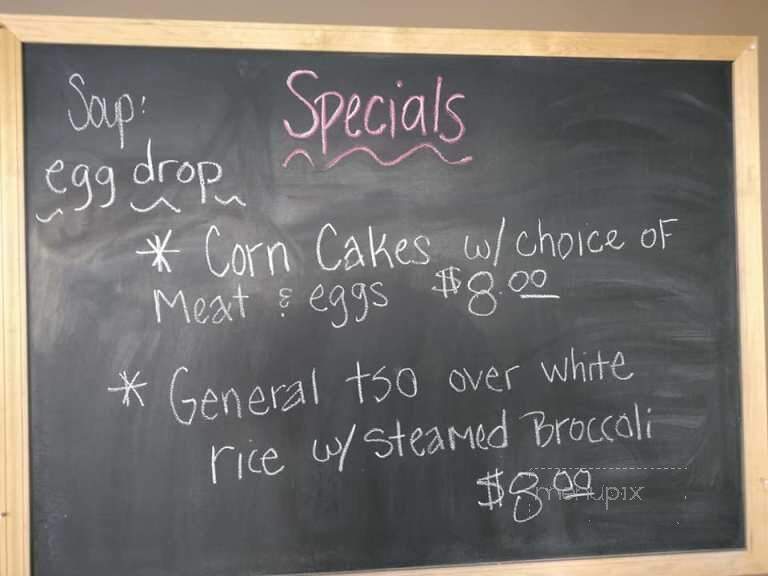 Specials
Soup:
egg drop
* Corn Cakes w/ choice of
Meat & eggs $8.00
* General tso over white
rice w/ steamed Broccoli
$8.00
menupix